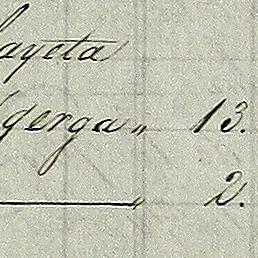 layeta
gerga " 13.
" 2.